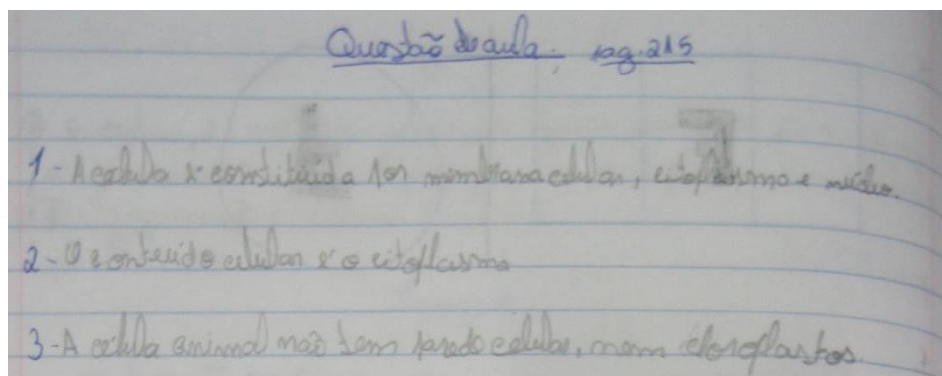 Questão de aula: pag. 215
1- A celula é constituída por membrana celular, citoplasmo e núcleo.
2- O conteúdo celular é o citoplasma
3- A celula animal não tem parede celular, nem cloroplastos.